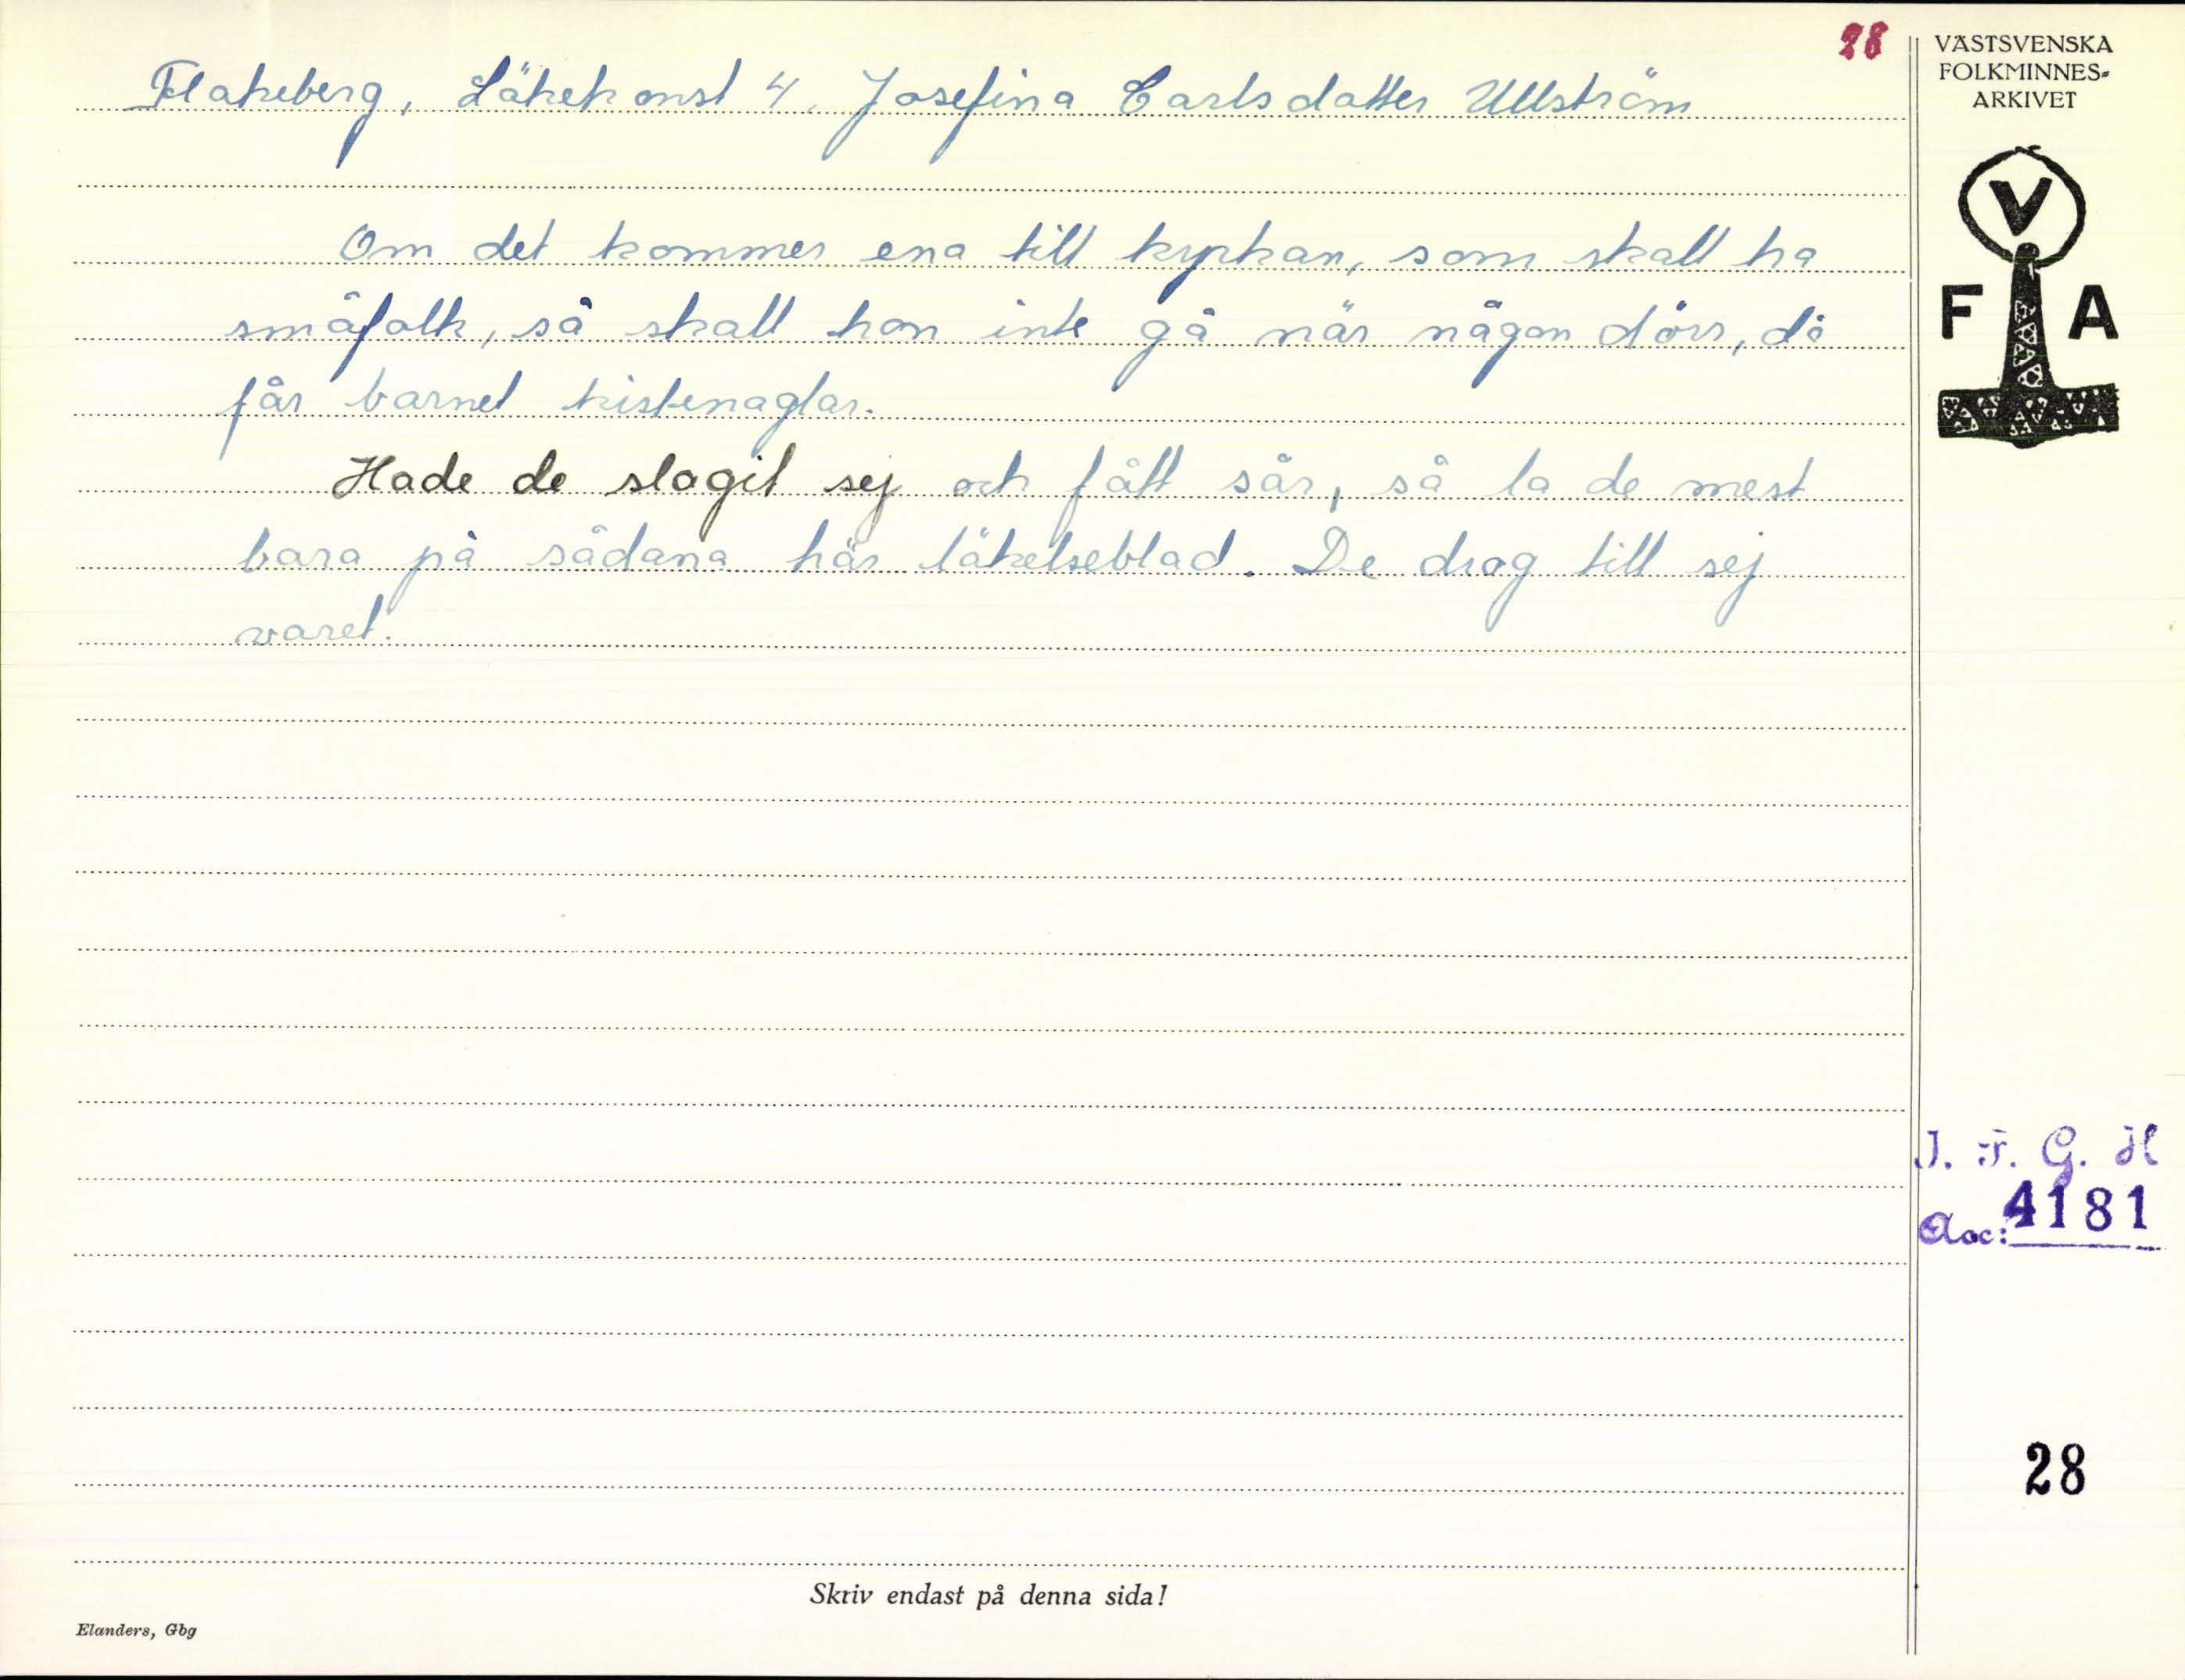 28
Flakeberg, Läkekonst 4. Josefina Carlsdotter Ullström
Om det kommer ena till kyrkan, som skall ha
småfolk, så skall hon inte gå när någon dörr, då
får barnet kistenaglar.
Hade de slagit sej och fått sår, så la de mest
bara på sådana här läkelseblad. De drog till sej
varet.
Skriv endast på denna sida!
Elanders, Gbg
VÄSTSVENSKA
FOLKMINNES-
ARKIVET
V
F A
I. F. G. H
Acc: 4181
28